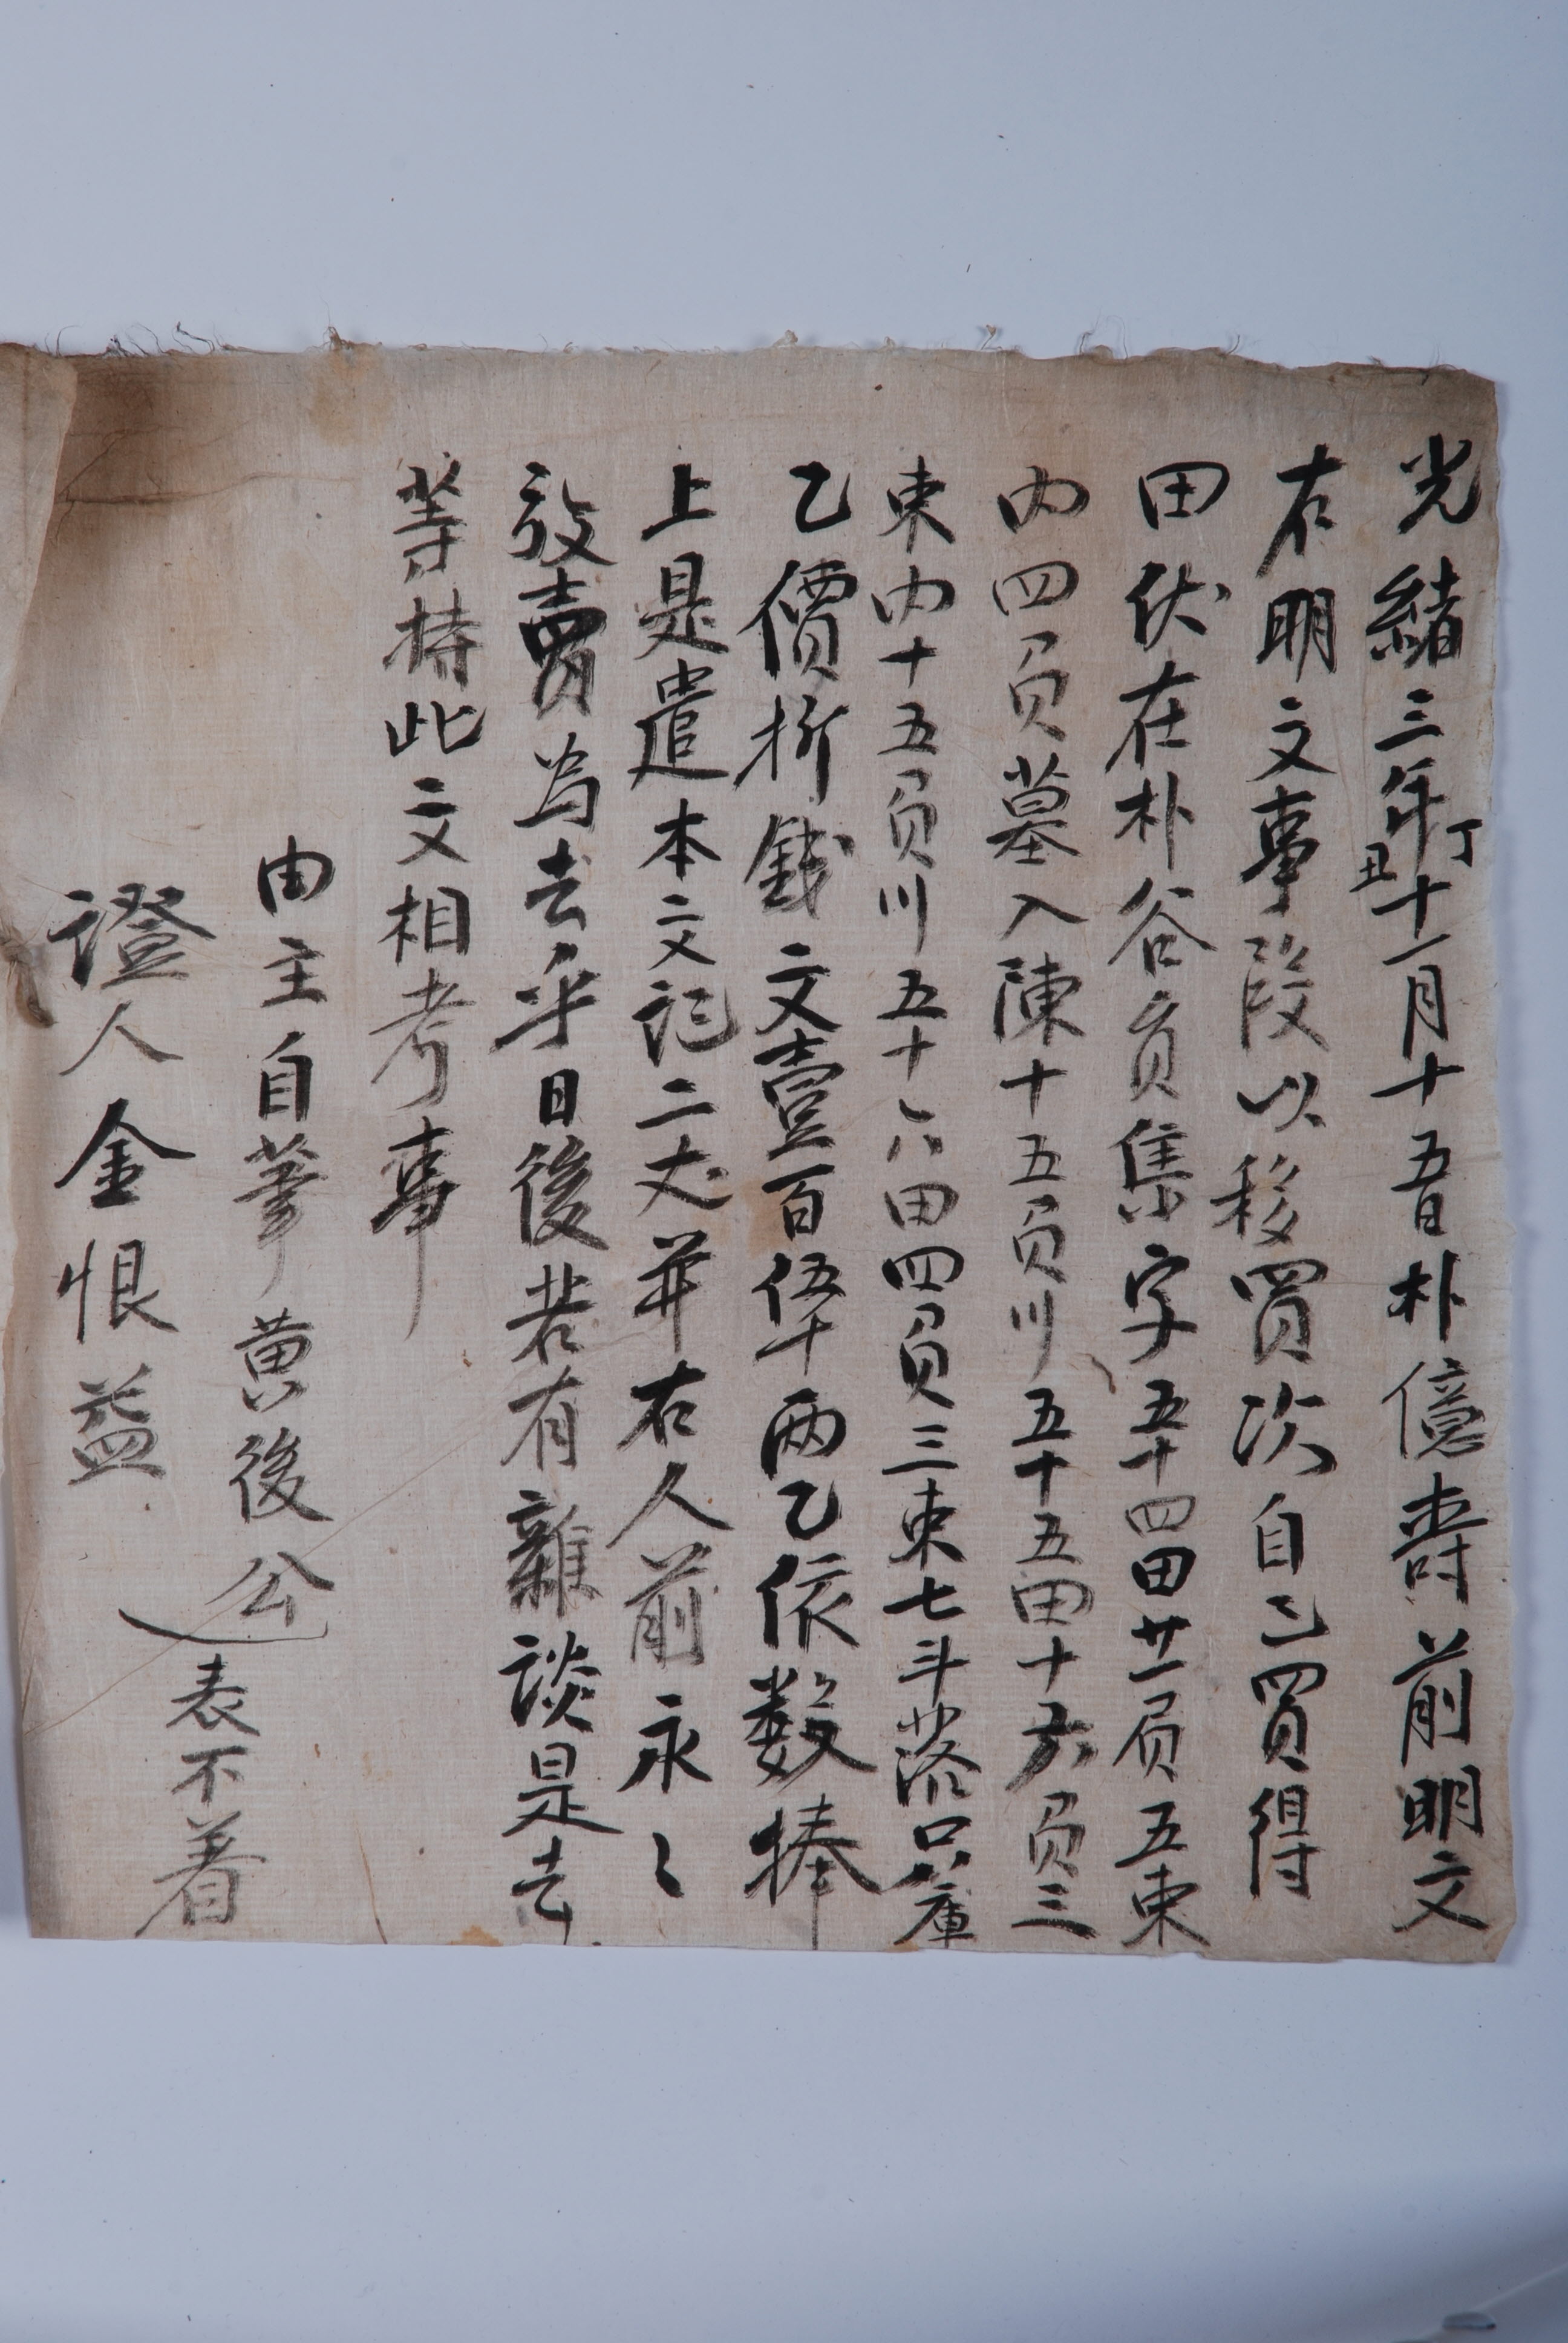 光緒三年丁丑十一月十五日朴億壽前明文
右明文事段以移買次自己買得
田伏在朴谷員集字五十四田廿一負五束
內四負墓入陳十五負川五十五田十六負三
束內十五負川五十六田四負三束七斗落只庫
乙價折錢文壹百伍十兩乙依數捧
上是遣本文記二丈幷右人前永〻
放賣爲去乎日後若有雜談是去
等持此文相考事
由主自筆黃後公
表不着
證人金恨益